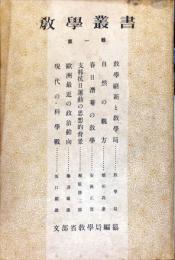 教學叢書
第一輯
教學刷新と教學局……教學局
自然の觀方……
春日潛菴の教學……
支那抗日運動の思想的背景……
歐洲最近の政治動向……
現代の科學戰……
文部省教學局編纂